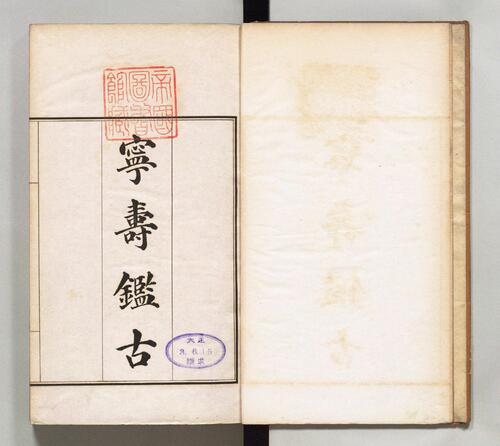 寧壽鑑古
帝國
圖書
館藏
大正
購求